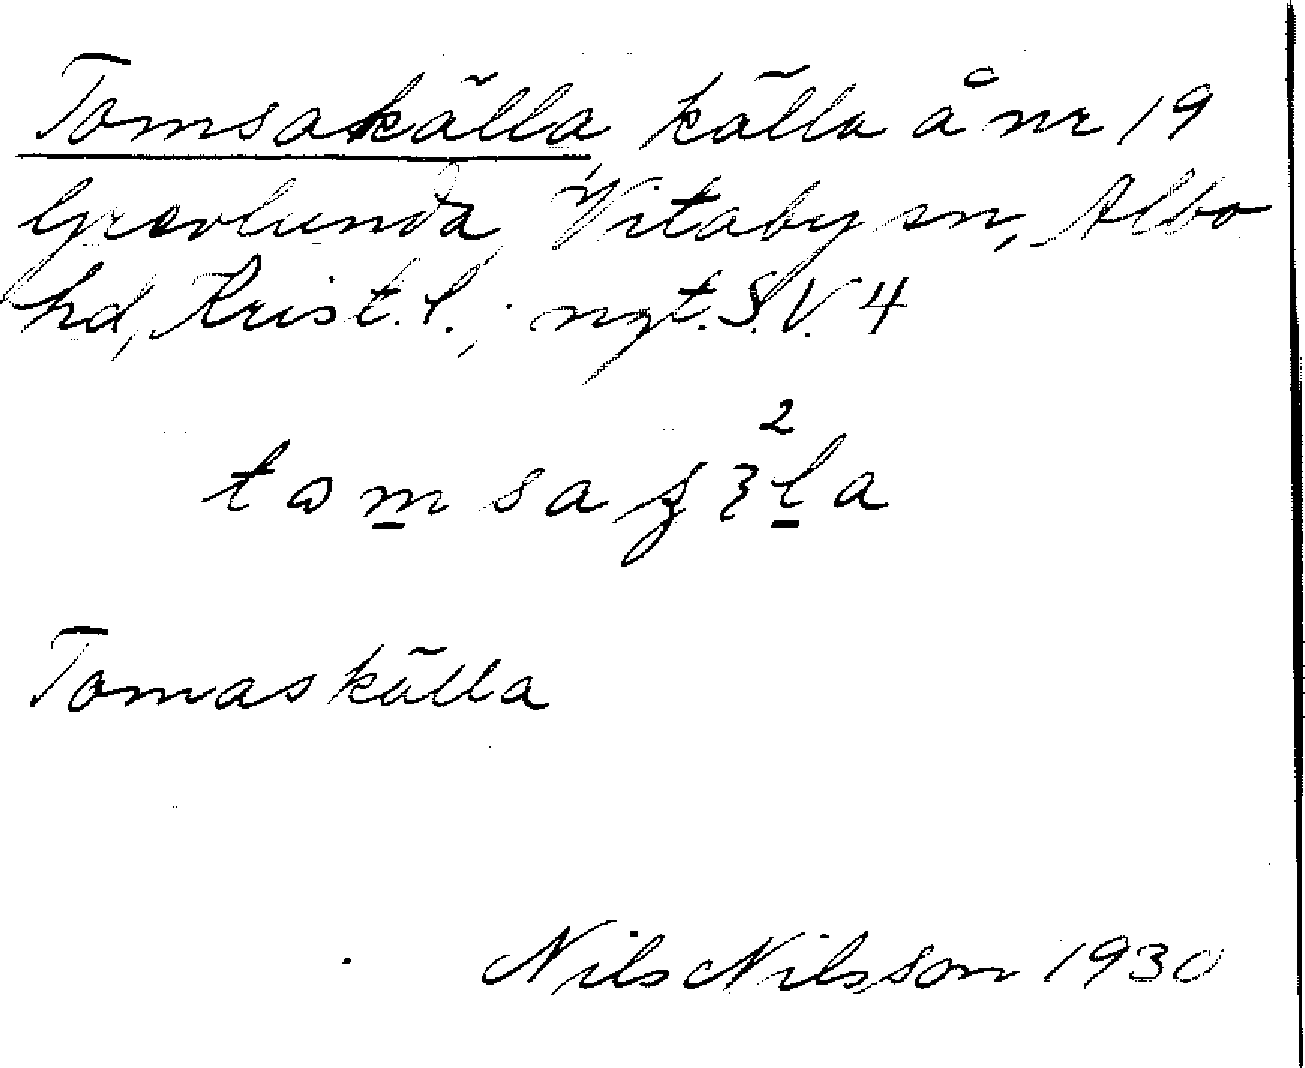 Tomsakälla, källa å nr 19
Grevlunda, Vitaby sn, Albo
hd, Krist. l.; ngt. S.V. 4
Tomaskälla
Nils Nilsson 1930